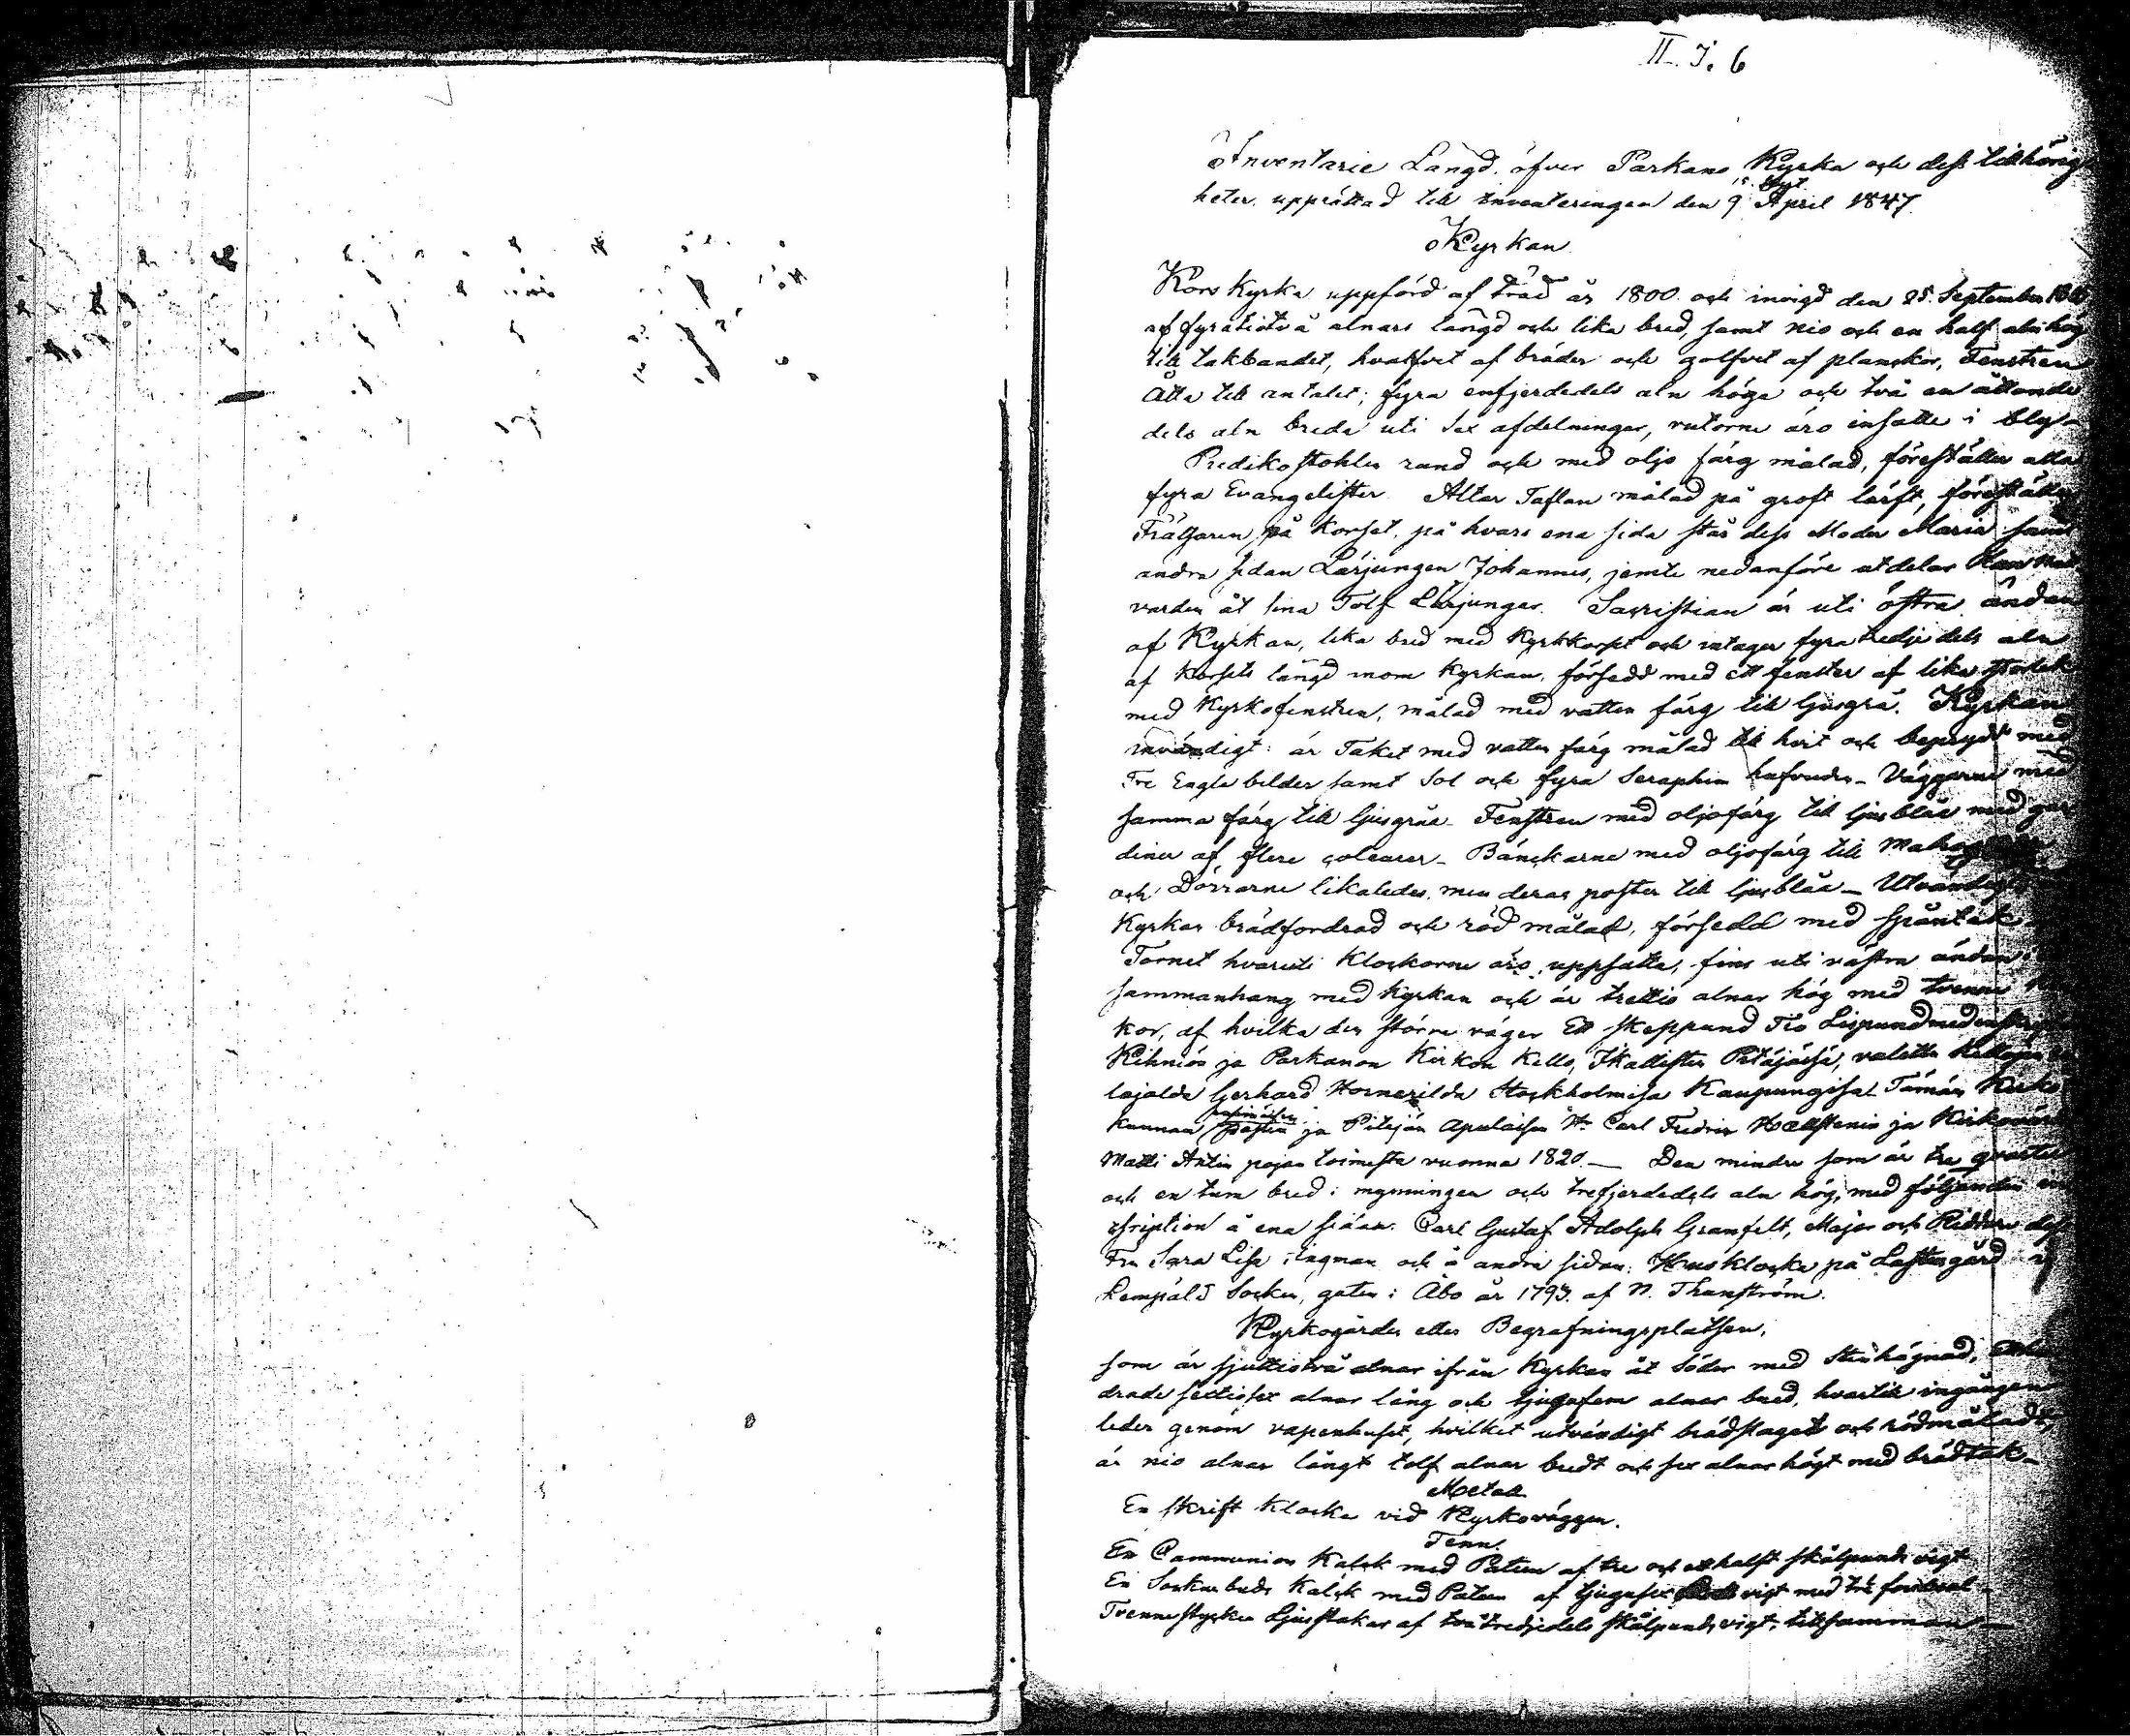 II. J. 6
Inventarie Längd öfver Parkano Kyrka och dess tillhörig
heter, upprättad till Inventeringen den 9 April 1847.
Kyrkan
Kors Kyrka uppförd af träd år 1800 och invigd den 25 September
af fyratiotvå alnars längd och lika bred, samt nio och en half aln hög
till takbandet, hvalfvet af bräder och golfvet af planckor, Fenstren
Åtta till antalet; fyra enfjerdedels aln höga och två en åttonde
dels aln breda uti sex afdelningar, rutorne äro insatte i bly-
Predikostohlen rund och med oljo färg målad, föreställer alla
fyra Evangelister. Altar Taflan målad på groft lärft, föreställer
Frälsaren på Korset, på hvars ena sida står dess Moder Maria samt
andra sidan Lärjungen Johannes, jemte nedanföre utdelar Han
varden åt sina Tolf Lärjungar. Sacristian är uti östra ändan
af Kyrkan, lika bred med Kyrkkorset och intager fyra tredjedels aln
af Korsets längd inom Kyrkan, försedd med ett fenster af lika storlek
med Kyrkofenstren, målad med vatten färg till ljusgrå. Kyrkan
invändigt: är Taket med vatten färg målad till hvit och beprydt med
Tre Engle bilder samt Sol och fyra Seraphim hufvuden - Väggarne med
samma färg till ljusgråa - Fenstren med oljofärg till ljusblåa med gar
diner af flere coleurer - Bänckarne med oljofärg till
och Dörrarne likaledes, men deras poster till ljusblåa - Utvändigt
Kyrkan brädfordrad och röd målad, försedd med spåntak
Tornet hvaruti Klockorne äro uppsatta, fins uti västra ändan i
sammanhang med Kyrkan och är trettio alnar hög med tvenne
kor, af hvilka den större väger Ett skeppund Tio Lispund med
Kihniös ja Parkanon Kirkon Kello, Ikallisten Pitäjäsä, valettu
lajalda Gerhard Horner ilda Stockholmisa Kaupungisa Tämän Kirko
kunnan ja Pitäjän Apulaisen Hr Carl Fredric Hællstenin ja
Matti Antin pojan toimesta vuonna 1820. - Den mindre som är tre qvarter
och en tum bred i mynningen och trefjerdedels aln hög, med följande in
skription å ena sidan: Carl Gustaf Adolph Granfelt, Major och Riddare dess
Fru Sara Lisa Ingman och å andra sidan: Husklocka på Lastusgård i
Lempälä Socken, guten i Åbo år 1793 af N. Thunström.
Kyrkogården eller Begrafningsplatsen,
som är sjuttiotvå alnar ifrån Kyrkan åt söder med stenhägnad,
drade sextiosex alnar lång och tjugufem alnar bred, hvartill ingången
leder genom vapenhuset, hvilket utvändigt brädslaget och rödmåladt,
är nio alnar långt tolf alnar bredt och sex alnar högt med brädtak -
Metall
En skrift klocka vid Kyrkoväggen.
Tenn.
En Communion Kalck med Paten af tre och ett halft skålpunds vigt
En Sockenbuds Kalck med Paten af tjugusex vigt med
Tvenne stycken Ljusstakar af två tredjedels skålpunds vigt, tillsamman -